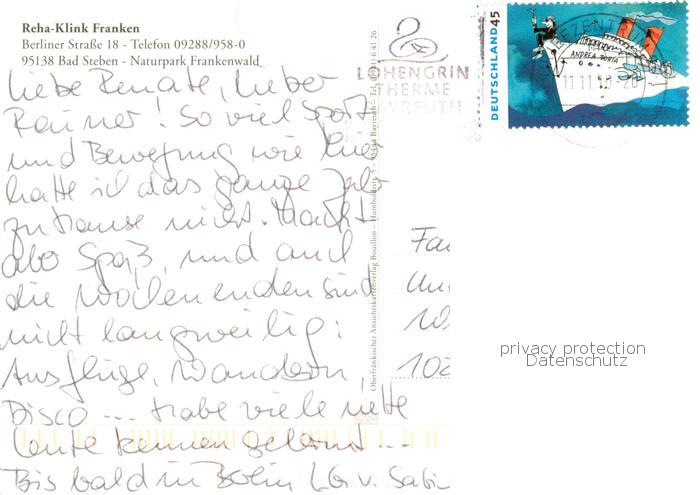 Reha-Klink Franken
Berliner Straße 18 - Telefon 09288/958-0
95138 Bad Steben - Naturpark Frankenwald
Liebe Renate, lieber
Rainer! So viel Sport
und Bewegung wie hier
hatte ich das ganze Jahr
zuhause nicht. Macht
abo Spaß, und auch
die Wochenenden sind
nicht langweilig:
Ausflüge, Wandern,
Disco ... habe viele nette
Leute kennen gelernt ...
Bis bald in Berlin LG v. Sabin
Oberfränkischer Ansichtskartenverlag Bouillon – Humboldtstr. 5 – Bayreuth – Tel. 6 41 26
LOHENGRIN
THERME
BAYREUTH
DEUTSCHLAND 45
ANDREA DORIA
11.11.
Fa
Un
102
privacy protection
Datenschutz